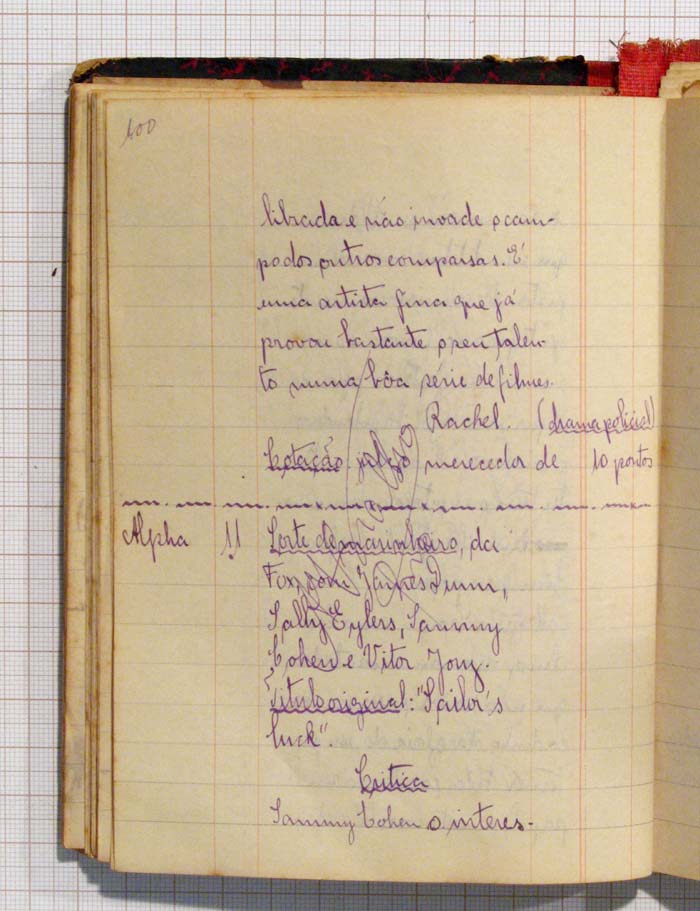 100
librada e não invade o cam-
po dos outros comparsas. É
uma artista fina que já
provou bastante o seu talen-
to numa bôa série de filmes.
Rachel. (drama policial)
Cotação: julgo merecedor de 10 pontos
Alpha 11 Sorte de marinheiro, da
Fox, com James Dunn,
Sally Eylers, Sammy
Cohen e Vitor Jory.
Titulo original: "Sailor's
luck"
Critica
Sammy Cohen o interes-